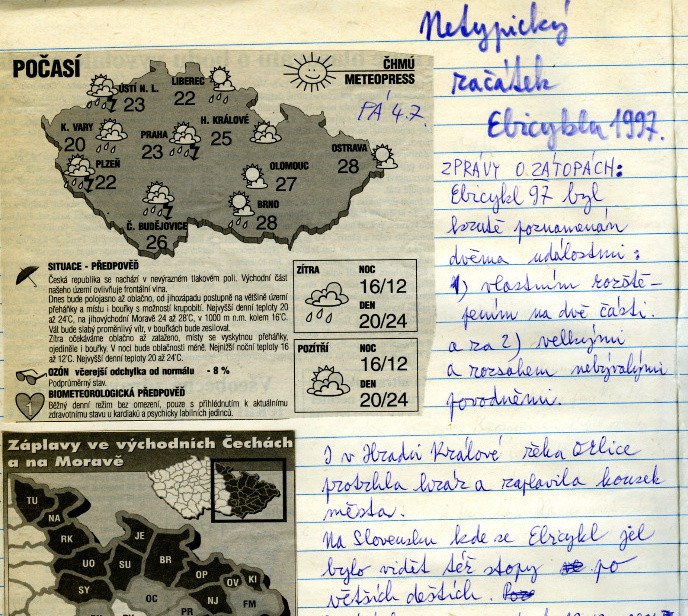 POČASÍ
ČHMÚ
METEOPRESS
PÁ 4.7.
ÚSTÍ N. L.
23
LIBEREC
22
K. VARY
20
PRAHA
23
H. KRÁLOVÉ
25
OSTRAVA
28
PLZEŇ
22
OLOMOUC
27
BRNO
28
Č. BUDĚJOVICE
26
SITUACE - PŘEDPOVĚĎ
Česká republika se nachází v nevýrazném tlakovém poli. Východní část
našeho území ovlivňuje frontální vlna.
Dnes bude polojasno až oblačno, od jihozápadu postupně na většině území
přeháňky a místu i bouřky s možností krupobití. Nejvyšší denní teploty 20
až 24°C, na jihovýchodní Moravě 24 až 28°C, v 1000 m n.m. kolem 16°C.
Vát bude slabý proměnlivý vítr, v bouřkách bude zesilovat.
Zítra očekáváme oblačno až zataženo, místy se vyskytnou přeháňky,
ojediněle i bouřky. V noci bude oblačnosti méně. Nejnižší noční teploty 16
až 12°C. Nejvyšší denní teploty 20 až 24°C.
OZÓN včerejší odchylka od normálu - 8 %
Podprůměrný stav.
BIOMETEOROLOGICKÁ PŘEDPOVĚĎ
1
Běžný denní režim bez omezení, pouze s přihlédnutím k aktuálnímu
zdravotnímu stavu u kardiaků a psychicky labilních jedinců.
ZÍTRA
NOC
16/12
DEN
20/24
POZÍTŘÍ
NOC
16/12
DEN
20/24
Netypický
začátek
Ebicyklu 1997.
ZPRÁVY O ZÁTOPÁCH:
Ebicykl 97 byl
krutě poznamenán
dvěma událostmi:
1) vlastním rozště-
pením na dvě části.
a za 2) velkými
a rozsahem nebývalými
povodněmi.
Záplavy ve východních Čechách
a na Moravě
TU
NA
RK
JE
UO
SU
BR
OP
OV
KI
SY
OC
PR
NJ
FM
I v Hradci Králové řeka Orlice
protrhla hráz a zaplavila kousek
města.
Na Slovensku kde se Ebicykl jel
bylo vidět též stopy po
větších deštích.